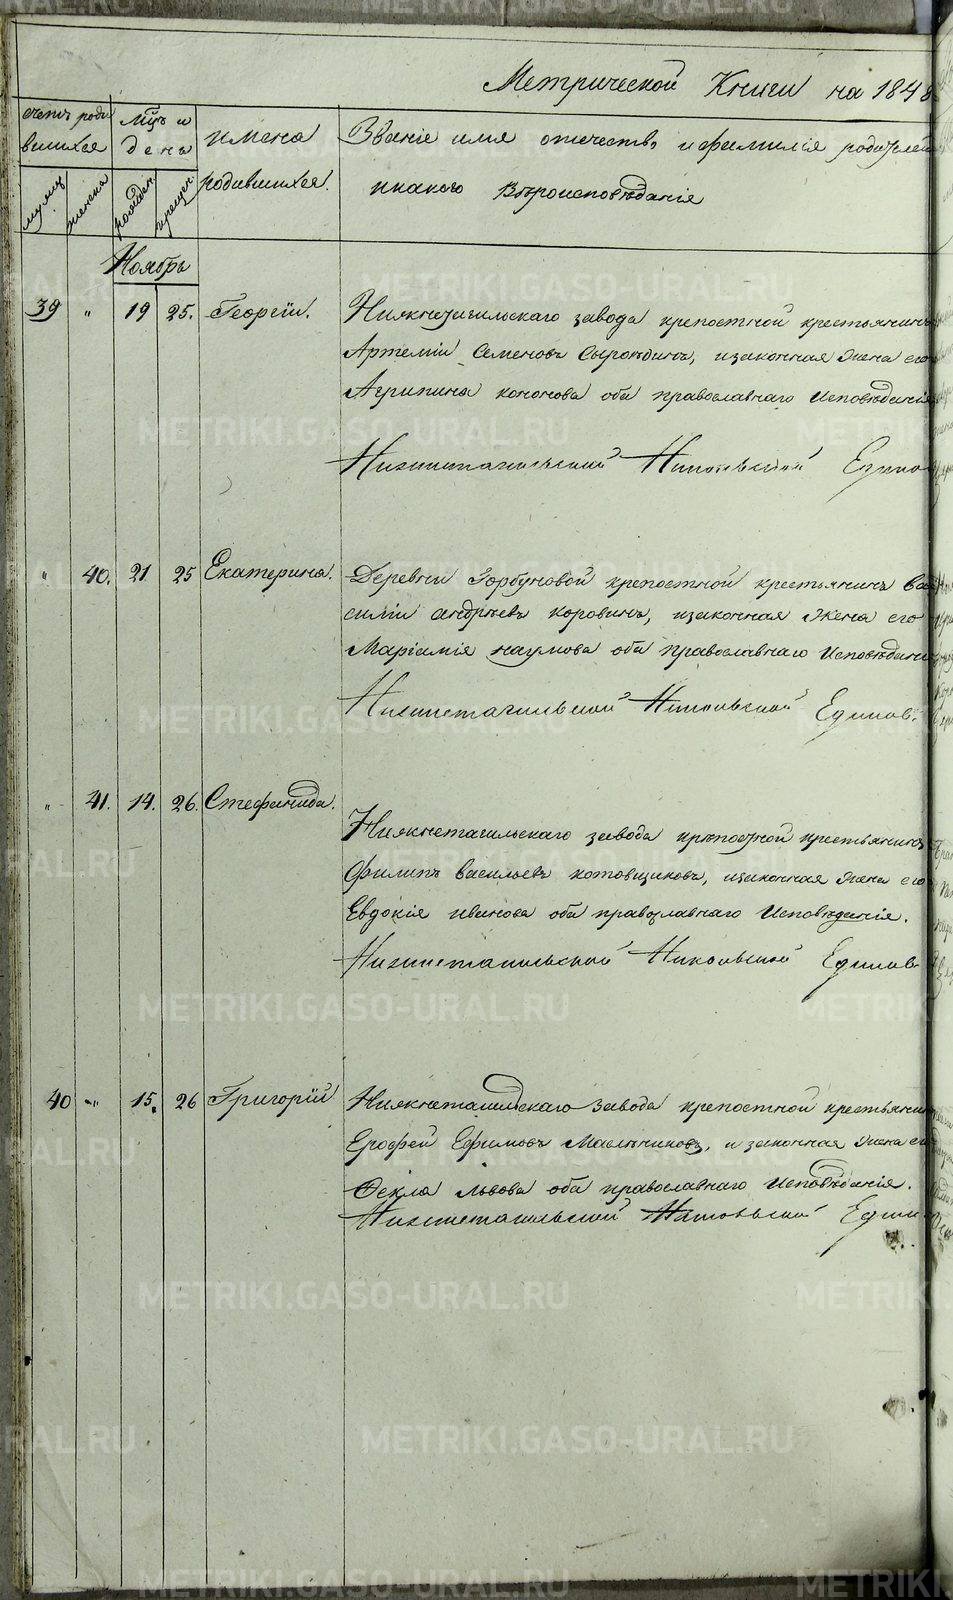 Метрической Книги на 1848
счетъ роди
вшихся
мужеск
женска
Мцъ и
день
рожден
крещен
имена
родившихся.
Званіе имя отечество, и фамилія родителей
и какого Вѣроисповѣданія
Ноябрь
39 " 19 25. Георгій. Нижнетагильскаго завода крепостной крестьянинъ
Артемій Семеновъ Сыропятинъ, и законная жена его
Агрипина кононова оба православнаго Исповѣданія
Нижнетагильской Никольской Едино
" 40. 21 25 Екатерина. Деревни Горбуновой крепостной крестьянинъ Ва
силій андрѣевъ коровинъ, и законная жена его
Маріамія наумова оба православнаго Исповѣдані
Нижнетагильской Никольской Единов
" 41. 14. 26. Стефанида.
Нижнетагильскаго завода крѣпостной крестьянинъ
Филипъ васильевъ котовщиковъ, и законная жена его
Евдокія иванова оба православнаго Исповѣданія.
Нижнетагильской Никольской Единов
40 " 15. 26 Григорій Нижнетагильскаго завода крепостной крестьянин
Ерофей Ефимовъ Масленниковъ, и законная жена ег
Фекла львова оба православнаго Исповѣданія.
Нижнетагильской Никольской Един
METRIKI.GASO-URAL.RU